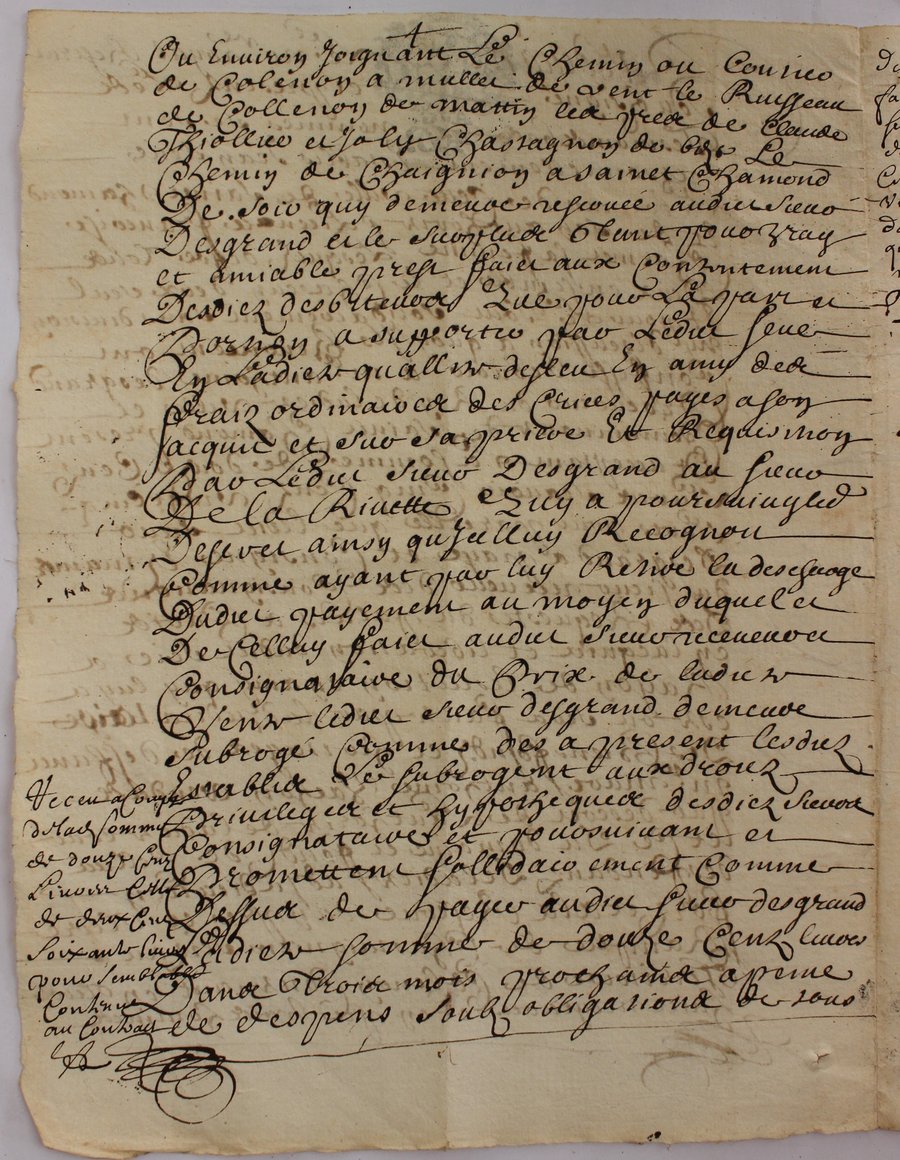 Ou Environ Joignant Le Chemin ou Courier
de Colenon a mullet de vent le Ruisseau
de Collenon de mattin les pres de Claude
Thiollier et Joly Chassagnon de bize Le
Chemin de Chaignion a sainct Chamond
De soir quy demeure audict sieur
Desgrand et le surplus Estant pour vray
et amiable prest faict aux Contentement
Desdictz desbiteurs Que pour La part et
a supporter par Ledict sieur
En Ladicte quallitté desleu En amy des
fraiz ordinaires des Criees payes a son
lacquit et sur sa priere Et Requismon
Par Ledict sieur Desgrand au sieur
De la Rivette Quy a poursuivy led
Desever ainsy qu'Jcelluy Recognoit
Comme ayant par luy Retiré la descharge
Dudict payement au moyen duquel et
De Celluy faict audict sieur receveur
Consignataire du Prix de ladicte
Vente ledict sieur desgrand demeure
Subrogé Comme des a present lesdictz
Establis Le subrogent aux droitz
Privileges et hypotheques desdictz sieurs
Consignataire et poursuivant et
Promettent sollidairement Comme
Dessus de payer audict sieur desgrand
Ladicte somme de douze Centz livres
Dans Trois mois prochains a peine
de despens soubz obligations de tous
Receu a Compte
de lad somme
de douze Cent
Livres Celle
de deux Cent
soixante livres
pour semblable
Contenue
au Contract